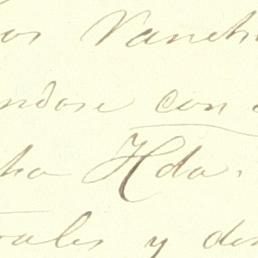 los Ranch
ndose con
cha Hda.
rales y de